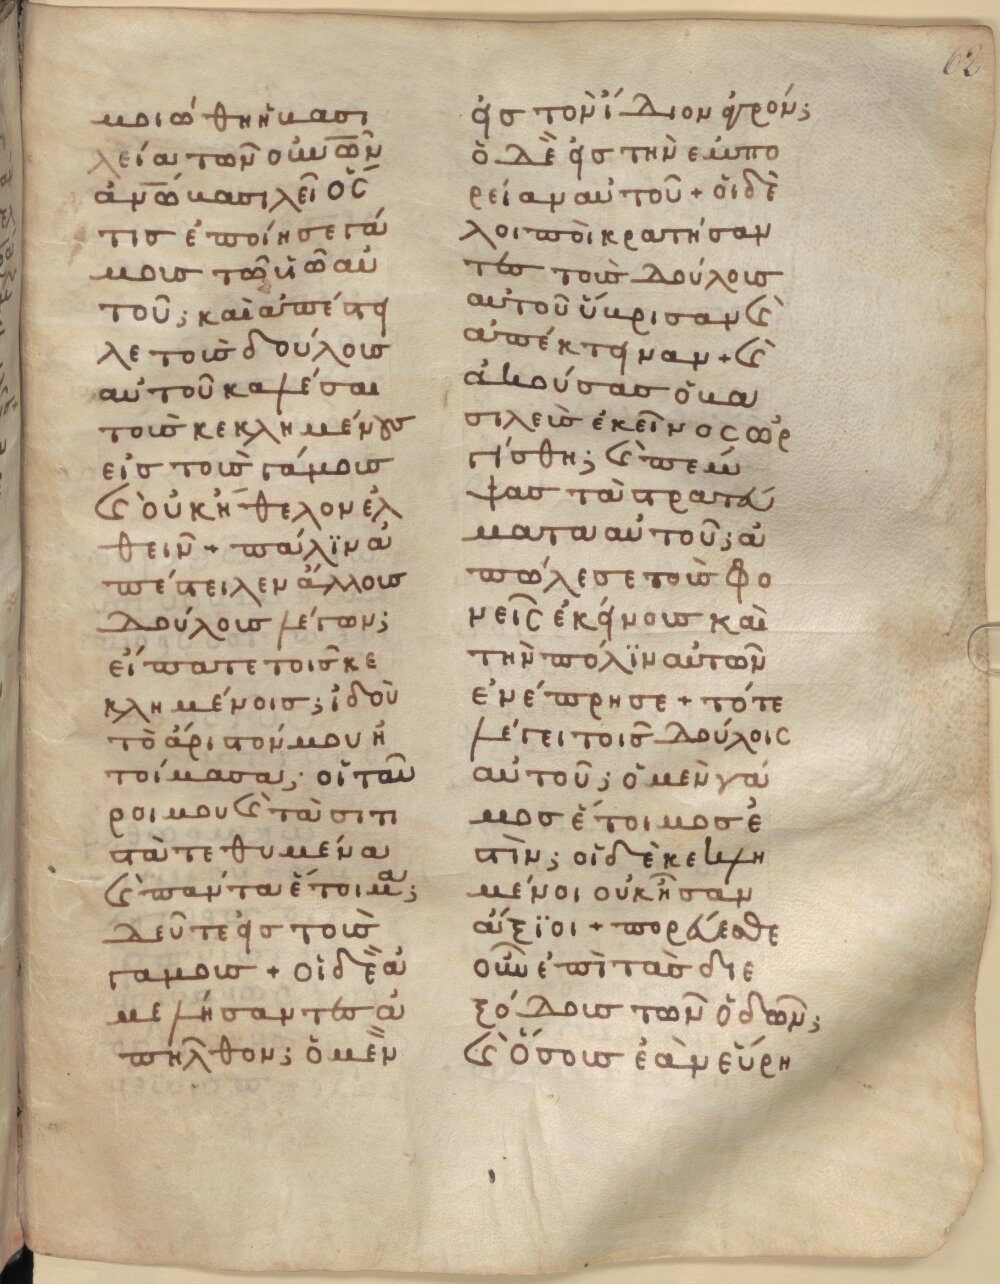 62
μοιώθη ἡ βασι
λεία τῶν οὐνῶν
ἀνω̅ βασιλεῖ ὅς
τις ἐποίησε γά
μους τῶ ὑῶ αὐ
τοῦ; καὶ ἀπέστει
λε τοὺς δούλους
αὐτοῦ καλέσαι
τοὺς κεκλημένους
εἰς τοὺς γάμους
ϗ οὐκ ἤθελον ἐλ
θεῖν + πάλϊν ἀ
πέστειλεν ἄλλους
δούλους λέγων;
εἴπατε τοῖς κε
κλημένοις; ἰδοὺ
τὸ ἄριστόν μου ἡ
τοίμασα; οἱ ταῦ
ροι μου ϗ τὰ σιτι
στὰ τεθυμένα
ϗ πάντα ἕτοιμα;
δεῦτε εἰς τοὺς
γάμους + οἱ δὲ ἀ
μελήσαντες ἀ
πῆλθον; ὁ μὲν
εἰς τὸν ἴδιον ἀγρόν;
ὁ δὲ εἰς τὴν ἐμπο
ρείαν αὐτοῦ + οἱ δὲ
λοιποὶ κρατήσαν
τες τοὺς δούλους
αὐτοῦ ὕβρισαν ϗ
ἀπέκτειναν + ϗ
ἀκούσας ὁ βα
σιλεὺς ἐκεῖνος ὠρ
γίσθη; ϗ πέμ
ψας τὰ στρατεύ
ματα αὐτοῦ; ἀ
πώλεσε τοὺς φο
νεῖς ἐκείνους καὶ
τὴν πόλϊν αὐτῶν
ἐνέπρησε + τότε
λέγει τοῖς δούλοις
αὐτοῦ; ὁ μὲν γά
μος ἕτοιμος ἐ
στὶν; οἱ δὲ κεκλη
μένοι οὐκ ἦσαν
ἄξϊοι + πορεύεσθε
οὖν ἐπὶ τὰς διε
ξόδους τῶν ὁδῶν;
ϗ ὅσους ἐὰν εὕρη